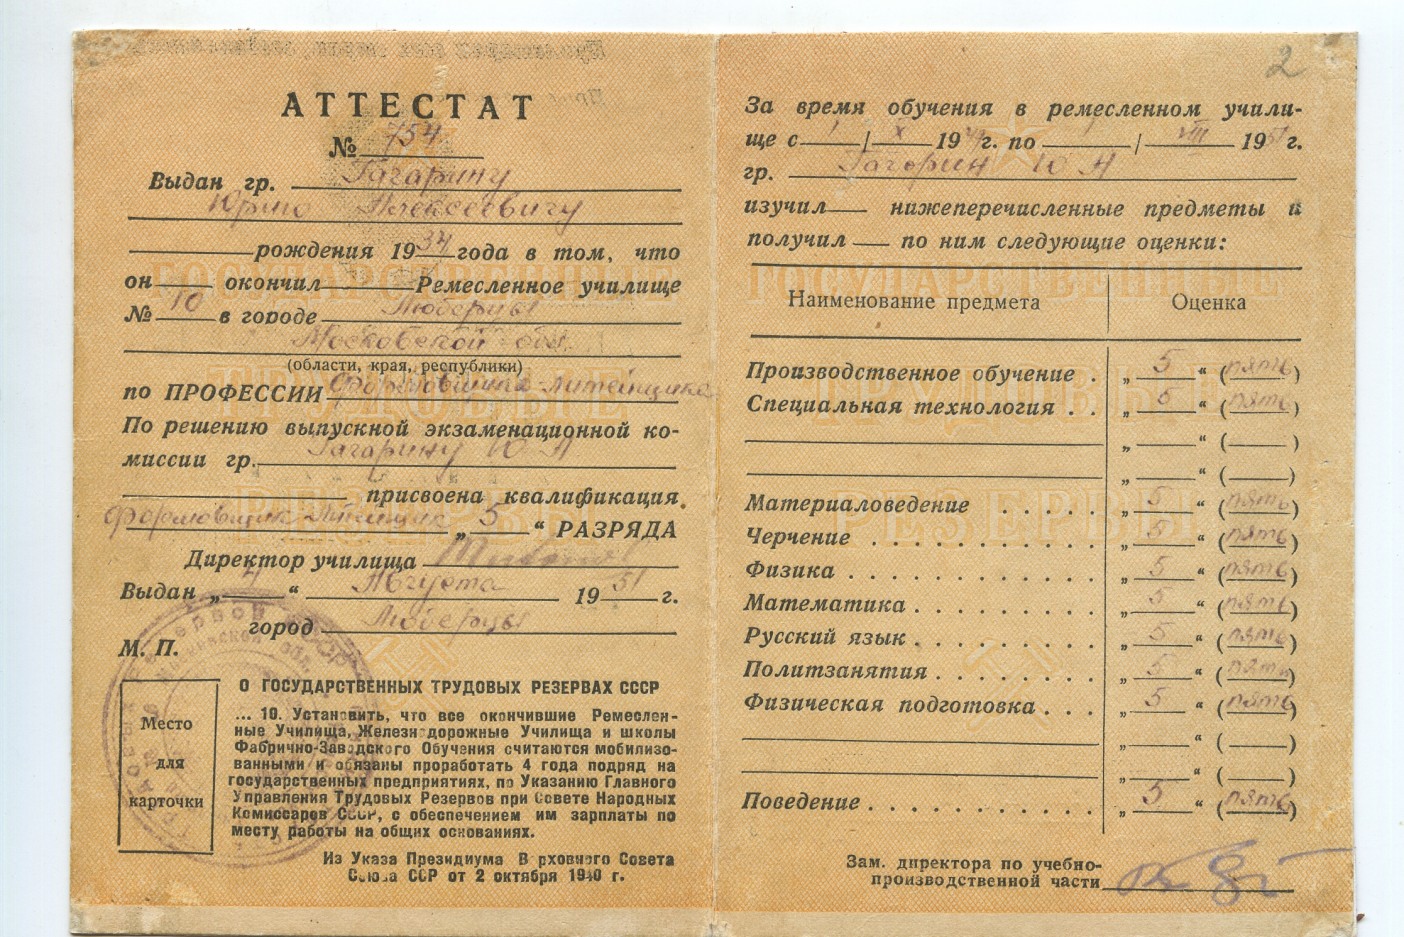 АТТЕСТАТ
№ 754
Выдан гр. Гагарину
Юрию Алексеевичу
рождения 1934 года в том, что
он окончил Ремесленное училище
№ 10 в городе Люберцы
Московской обл
(области, края, республики)
по ПРОФЕССИИ Формовщика-литейщика
По решению выпускной экзаменационной ко-
миссии гр. Гагарину Ю А
присвоена квалификация
Формовщик-Литейщик „ 5 “ РАЗРЯДА
Директор училища
Выдан „ “ Августа 1951 г.
город Люберцы
М. П.
Место
для
карточки
О ГОСУДАРСТВЕННЫХ ТРУДОВЫХ РЕЗЕРВАХ СССР
... 10. Установить, что все окончившие Ремеслен-
ные Училища, Железнодорожные Училища и школы
Фабрично-Заводского Обучения считаются мобилизо-
ванными и обязаны проработать 4 года подряд на
государственных предприятиях, по Указанию Главного
Управления Трудовых Резервов при Совете Народных
Комиссаров СССР, с обеспечением им зарплаты по
месту работы на общих основаниях.
Из Указа Президиума Верховного Совета
Союза ССР от 2 октября 1940 г.
2
За время обучения в ремесленном учили-
ще с / X 1949 г. по / VIII 1951 г.
гр. Гагарин Ю А
изучил нижеперечисленные предметы и
получил по ним следующие оценки:
Наименование предмета Оценка
Производственное обучение . „ 5 “ (пять)
Специальная технология . . „ 5 “ (пять)
„ “ ( )
„ “ ( )
Материаловедение . . . . . „ 5 “ (пять)
Черчение . . . . . . . . . . . „ 5 “ (пять)
Физика . . . . . . . . . . . . „ 5 “ (пять)
Математика . . . . . . . . . „ 5 “ (пять)
Русский язык . . . . . . . . . „ 5 “ (пять)
Политзанятия . . . . . . . . „ 5 “ (пять)
Физическая подготовка . . . „ 5 “ (пять)
„ “ ( )
„ “ ( )
Поведение . . . . . . . . . . . „ 5 “ (пять)
Зам. директора по учебно-
производственной части
ГОСУДАРСТВЕННЫЕ
ТРУДОВЫЕ
РЕЗЕРВЫ
ГОСУДАРСТВЕННЫЕ
ТРУДОВЫЕ
РЕЗЕРВЫ